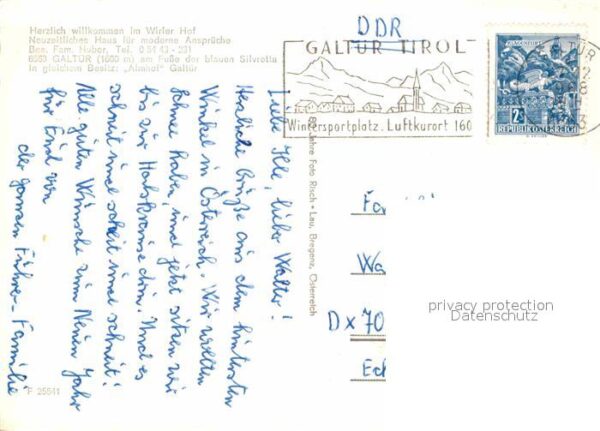 Herzlich willkommen im Wirler Hof
Neuzeitliches Haus für moderne Ansprüche
Bes. Fam. Huber, Tel. 0 51 43 - 231
6563 GALTÜR (1600 m) am Fuße der blauen Silvretta
In gleichem Besitz: „Almhof" Galtür
DDR
GALTÜR TIROL
Wintersportplatz. Luftkurort 160
2S
REPUBLIK ÖSTERREICH
Liebe Ille, lieber Walter!
Herzliche Grüße aus dem hintersten
Winkel in Österreich. Wir wollten
Schnee haben, und jetzt sitzen wir
bis zur Halskrause drin. Und es
schneit und schneit und schneit!
Alle guten Wünsche zum Neuen Jahr
für Euch von
der ganzen Führer-Familie
Jahre Foto Risch-Lau, Bregenz, Österreich
Fa
Wa
D x 70
Ech
privacy protection
Datenschutz
F 25511